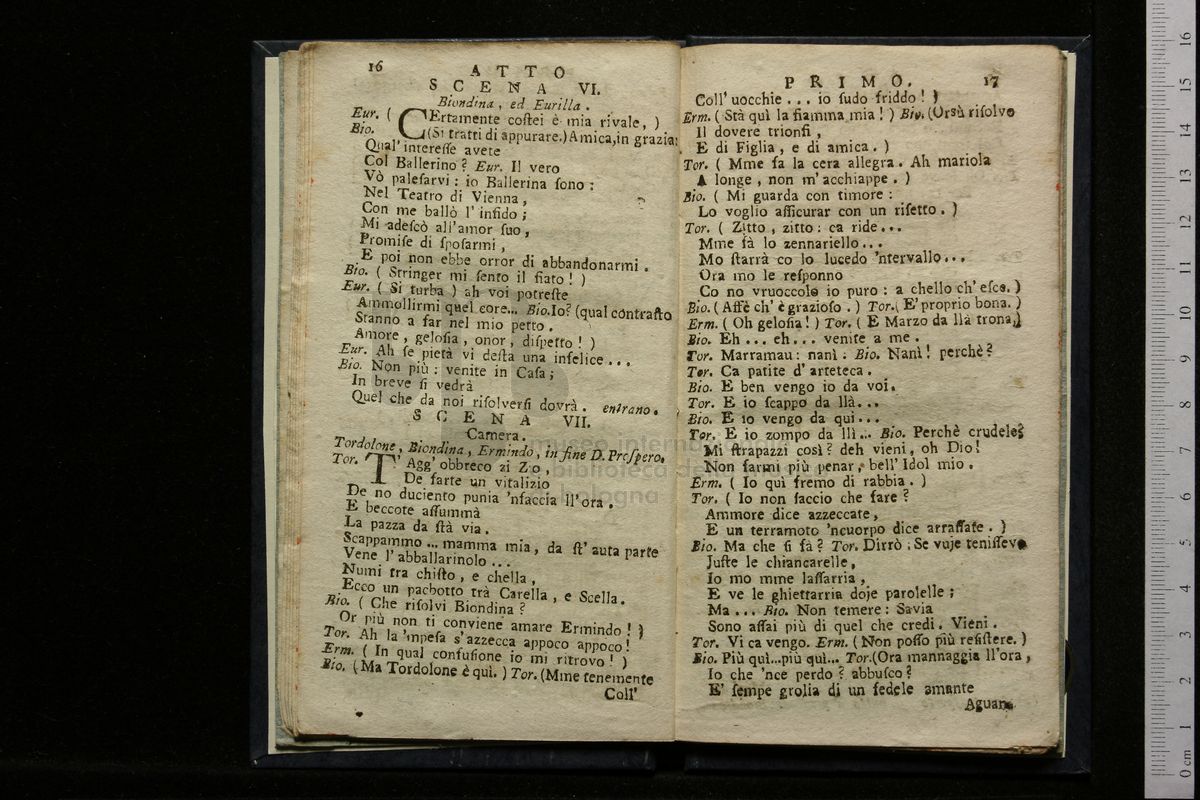 16
ATTO
SCENA VI.
Biondina, ed Eurilla.
Eur. ( CErtamente coſtei è mia rivale, )
Bio. (Si tratti di appurare.) Amica, in grazia:
Qual' intereſſe avete
Col Ballerino? Eur. Il vero
Vò paleſarvi: io Ballerina ſono:
Nel Teatro di Vienna,
Con me ballò l' infido;
Mi adeſcò all'amor ſuo,
Promiſe di ſpoſarmi,
E poi non ebbe orror di abbandonarmi.
Bio. ( Stringer mi ſento il fiato! )
Eur. ( Si turba ) ah voi potreſte
Ammollirmi quel core... Bio. Io? (qual contraſto
Stanno a far nel mio petto.
Amore, geloſia, onor, diſpetto! )
Eur. Ah ſe pietà vi deſta una infelice...
Bio. Non più: venite in Caſa;
In breve ſi vedrà
Quel che da noi riſolverſi dovrà. entrano.
SCENA VII.
Camera.
Tordolone, Biondina, Ermindo, in fine D. Proſpero.
Tor. T' Agg' obbreco zi Zio,
De farte un vitalizio
De no duciento punia 'nfaccia ll'ora.
E beccote aſſummà
La pazza da ſtà via.
Scappammo... mamma mia, da ſt' auta parte
Vene l'abballarinolo...
Numi tra chiſto, e chella,
Ecco un pacbotto trà Carella, e Scella.
Bio. ( Che riſolvi Biondina?
Or più non ti conviene amare Ermindo! )
Tor. Ah la 'mpeſa s'azzecca appoco appoco!
Erm. ( In qual confuſione io mi ritrovo! )
Bio. (Ma Tordolone è quì.) Tor. (Mme tenemente
Coll'
PRIMO. 17
Coll' uocchie... io ſudo friddo! )
Erm. ( Stà quì la fiamma mia! ) Bio. (Orsù riſolvo
Il dovere trionfi,
E di Figlia, e di amica. )
Tor. ( Mme fa la cera allegra. Ah mariola
A longe, non m'acchiappe. )
Bio. ( Mi guarda con timore:
Lo voglio aſſicurar con un riſetto. )
Tor. ( Zitto, zitto: ca ride...
Mme fà lo zennariello...
Mo ſtarrà co lo lucedo 'ntervallo...
Ora mo le reſponno
Co no vruoccolo io puro: a chello ch'eſce. )
Bio. ( Affè ch' è grazioſo. ) Tor. ( E' proprio bona. )
Erm. ( Oh geloſia! ) Tor. ( E Marzo da llà trona, )
Bio. Eh... eh... venite a me.
Tor. Marramau: nanì: Bio. Nanì! perchè?
Tor. Ca patite d'arteteca.
Bio. E ben vengo io da voi.
Tor. E io ſcappo da llà...
Bio. E io vengo da qui...
Tor. E io zompo da llì... Bio. Perchè crudele?
Mi ſtrapazzi così? deh vieni, oh Dio!
Non farmi più penar, bell' Idol mio.
Erm. ( Io quì fremo di rabbia. )
Tor. ( Io non ſaccio che fare?
Ammore dice azzeccate,
E un terramoto 'ncuorpo dice arraſſate. )
Bio. Ma che ſi fà? Tor. Dirrò: Se vuje teniſſevo
Juſte le chiancarelle,
Io mo mme laſſarria,
E ve le ghiettarria doje parolelle;
Ma... Bio. Non temere: Savia
Sono aſſai più di quel che credi. Vieni.
Tor. Vi ca vengo. Erm. ( Non poſſo più reſiſtere. )
Bio. Più quì...più quì... Tor. (Ora mannaggia ll'ora,
Io che 'nce perdo? abbuſco?
E' ſempe grolia di un fedele amante
Aguan
museo internazionale
biblioteca della musica
bologna
0 cm 1 2 3 4 5 6 7 8 9 10 11 12 13 14 15 16